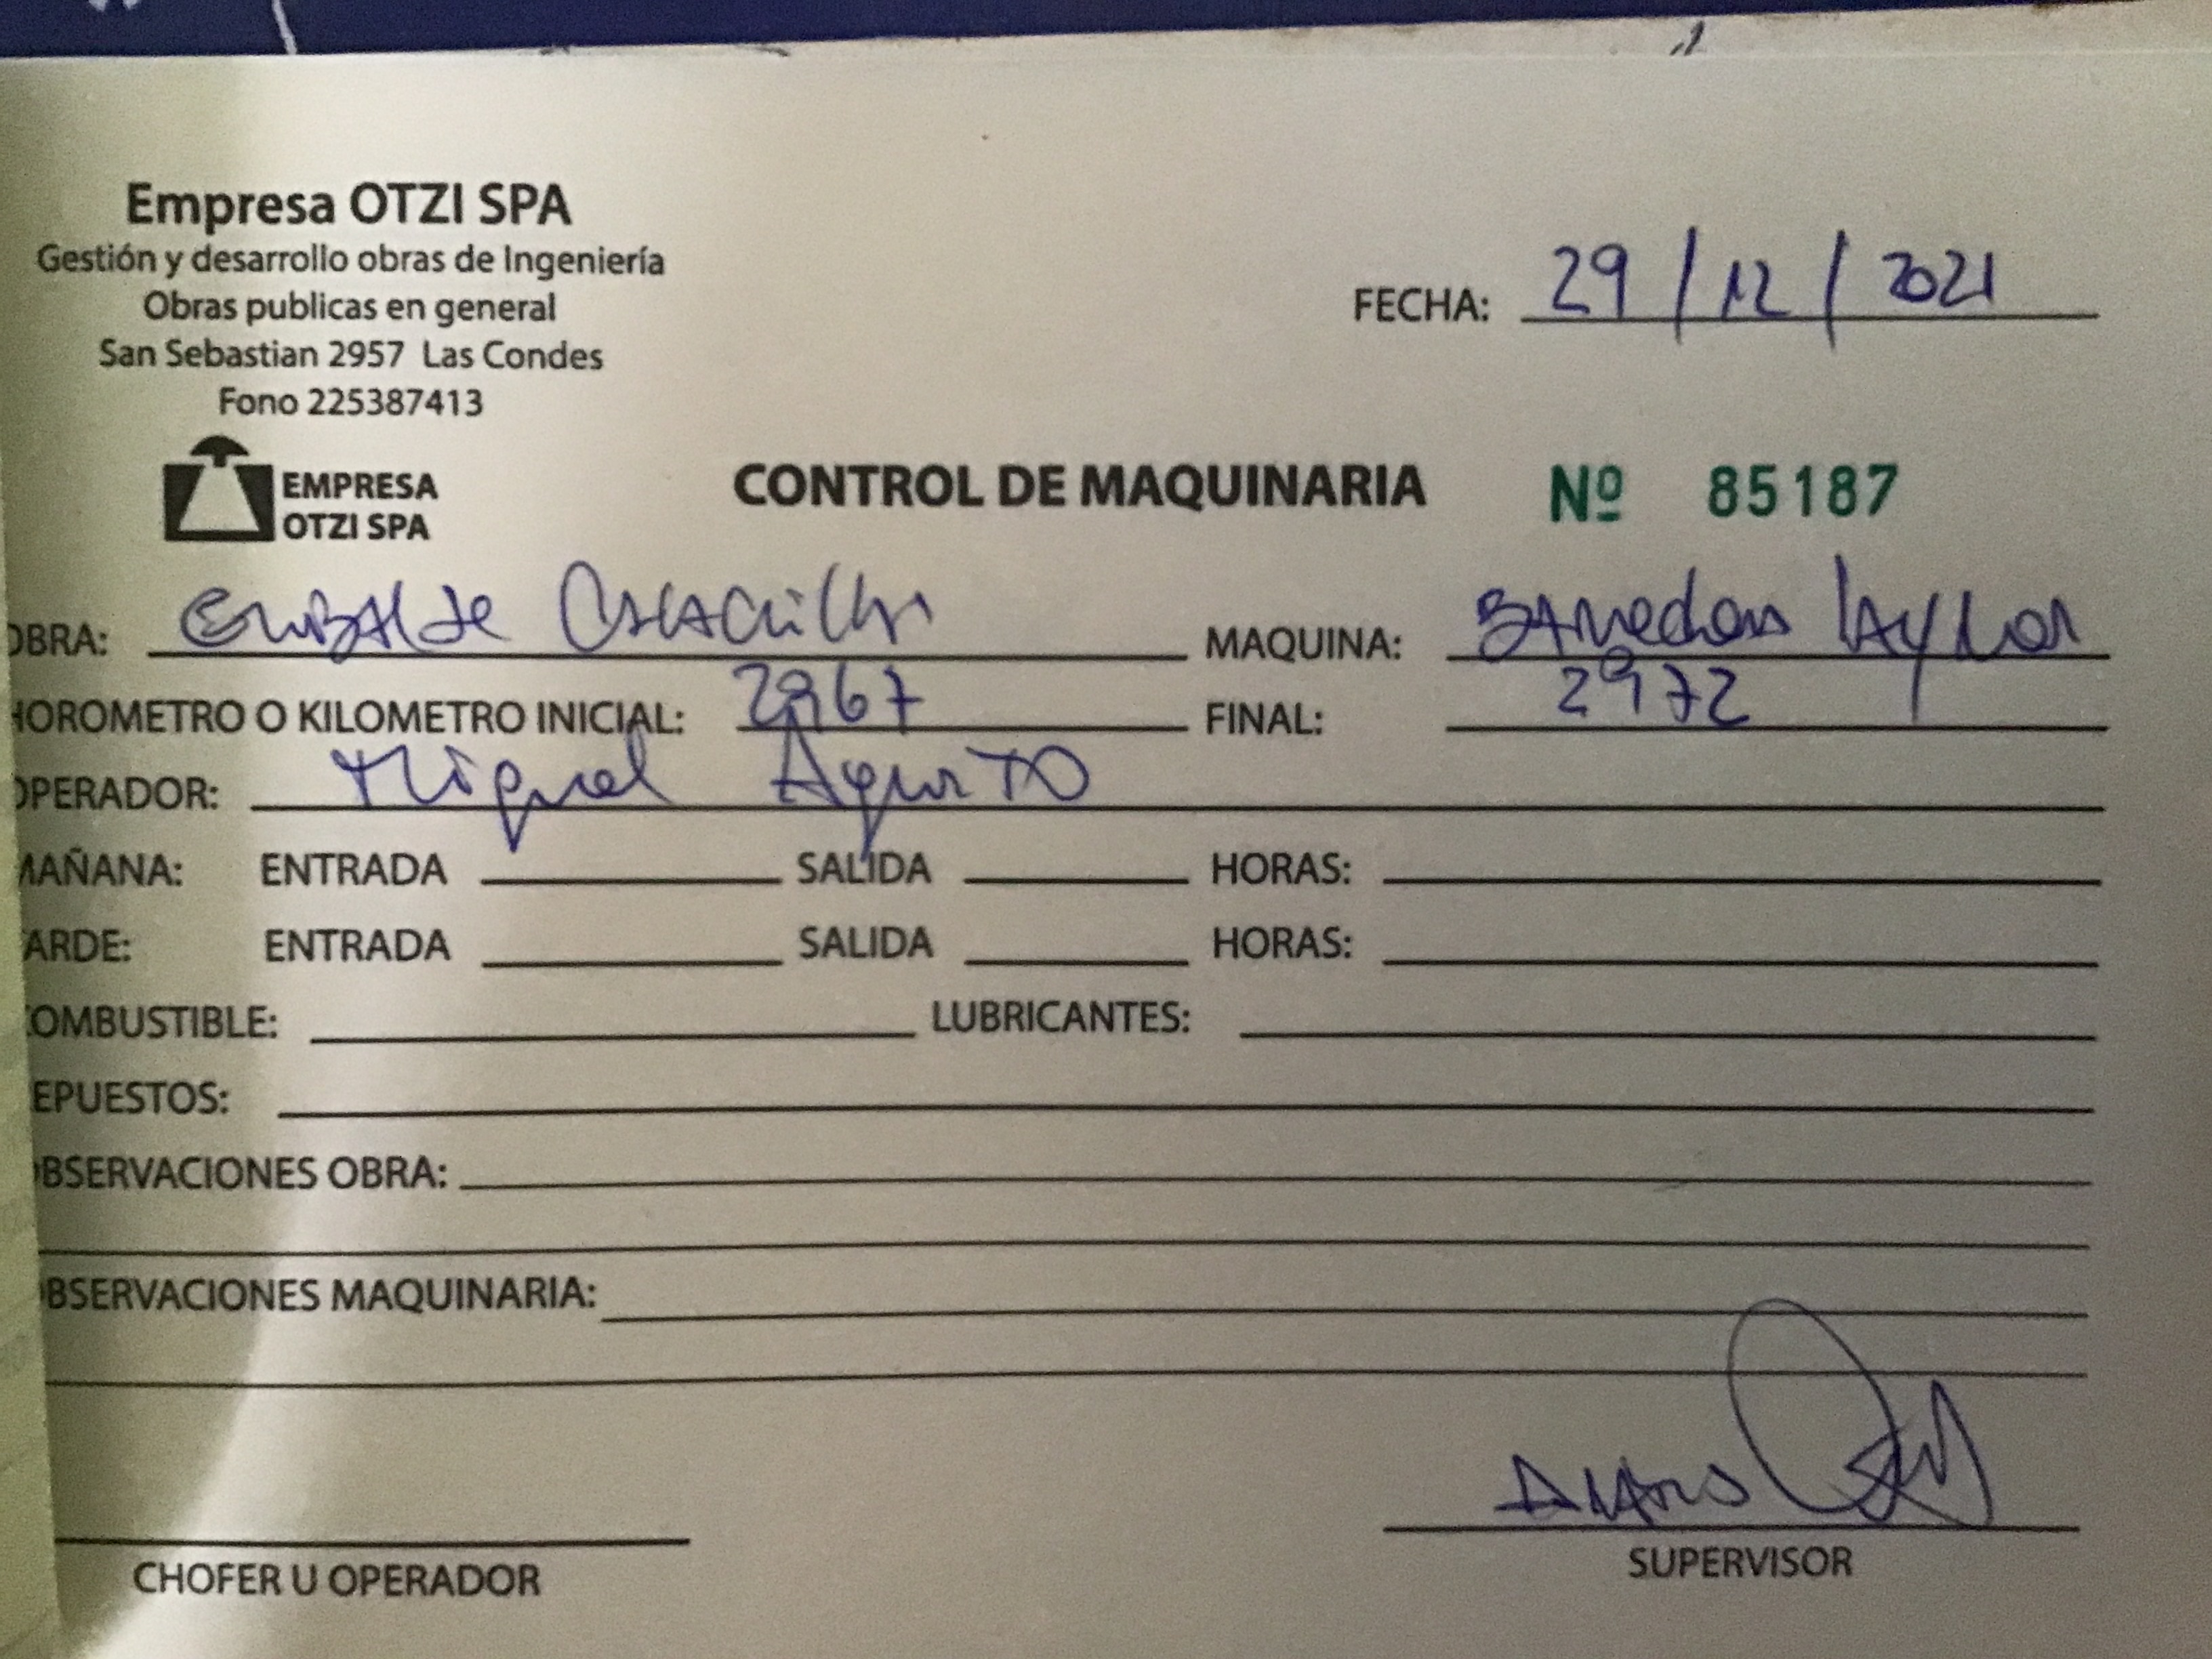 Empresa OTZI SPA
Gestión y desarrollo obras de Ingeniería
Obras publicas en general
San Sebastian 2957 Las Condes
Fono 225387413
FECHA: 29/12/2021
EMPRESA
OTZI SPA
CONTROL DE MAQUINARIA Nº 85187
OBRA: Embalde MAQUINA:
HOROMETRO O KILOMETRO INICIAL: 2967 FINAL: 2972
OPERADOR: Miguel
MAÑANA: ENTRADA SALIDA HORAS:
ARDE: ENTRADA SALIDA HORAS:
OMBUSTIBLE: LUBRICANTES:
EPUESTOS:
BSERVACIONES OBRA:
BSERVACIONES MAQUINARIA:
CHOFER U OPERADOR
SUPERVISOR